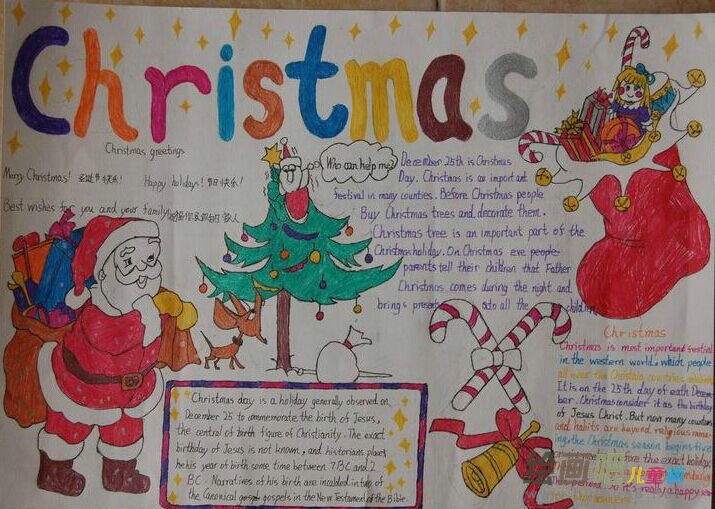 Christmas
Christmas greetings
Merry Christmas! 圣诞节快乐!
Happy holidays! 节日快乐!
Best wishes for you and your family!
Who can help me?
December 25th is Christmas
Day. Christmas is an important
festival in many counties. Before Christmas people
Buy Christmas trees and decorate them.
Christmas tree is an important part of the
Christmas holiday. On Christmas eve people
parents tell their children that Father
Christmas comes during the night and
brings presents to all the children
Christmas day is a holiday generally observed on
December 25 to commemorate the birth of Jesus,
the central of birth figure of Christianity. The exact
birthday of Jesus is not known, and historians place
he his year of birth some time between 7 BC and 2
BC. Narratives of his birth are included in
the Canonical gospels in the New Testament of the Bible.
Christmas
Christmas is most important festival
in the western world. which people
all over the Christian countries celebrate
It is on the 25th day of each Decem-
ber. Christmas consider it as the birthday
of Jesus Christ. But now many
and habits are beyond religious mean-
ing, the Christmas season begins five
before the exact holiday
so it's really a happy
绘画 儿童网